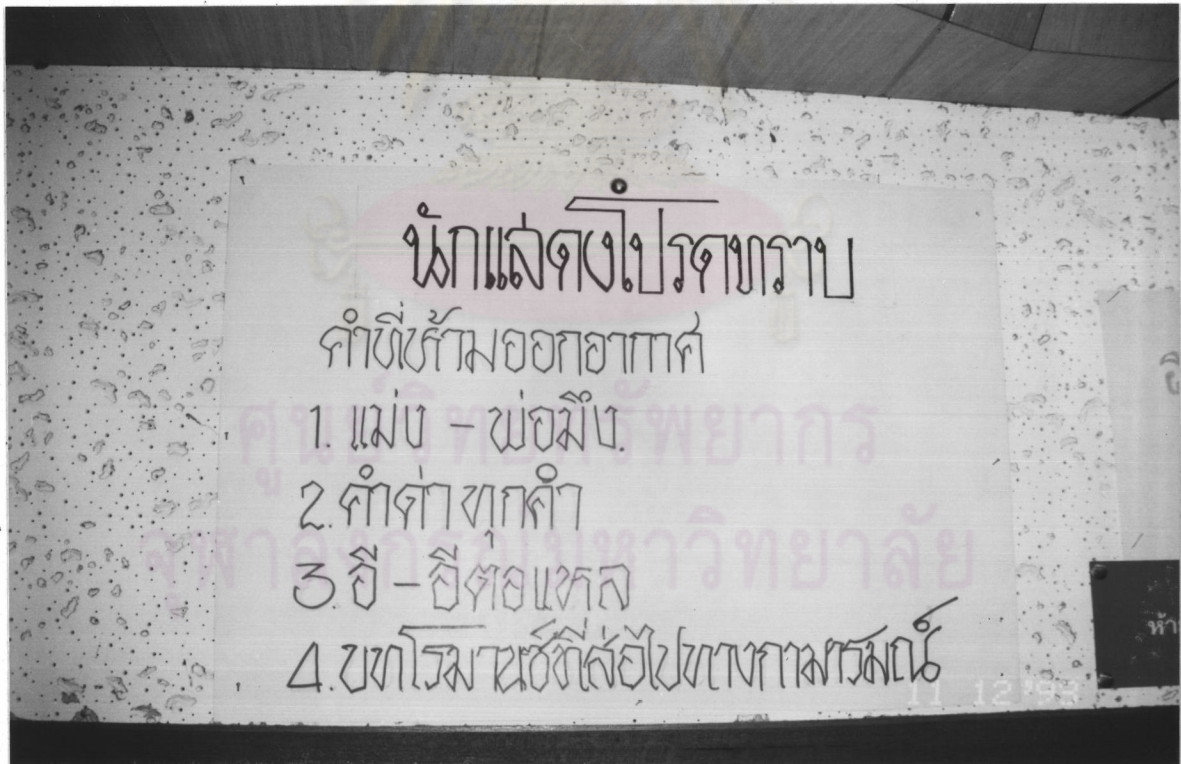 นักแสดงโปรดทราบ
คำที่ห้ามออกอากาศ
1. แม่ง - พ่อมึง.
2. คำด่าทุกคำ
3. อี - อีตอแหล
4. บทโรมานซ์ที่ส่อไปทางกามารมณ์
ศูนย์วิทยทรัพยากร
จุฬาลงกรณ์มหาวิทยาลัย
ห้า
11 12 '93